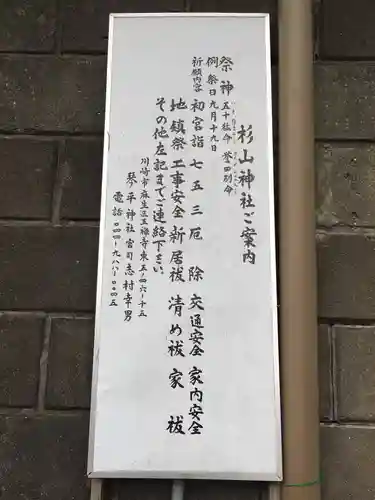 杉山神社ご案内
祭神 五十猛命 誉田別命
例祭日 九月十九日
祈願内容 初宮詣 七五三 厄除 交通安全 家内安全
地鎮祭 工事安全 新居祓 清め祓 家祓
その他左記までご連絡下さい
川崎市麻生区王禅寺東五ノ四六ノ十五
琴平神社 宮司 志村幸男
電話 〇四四ー九八八ー〇〇四五